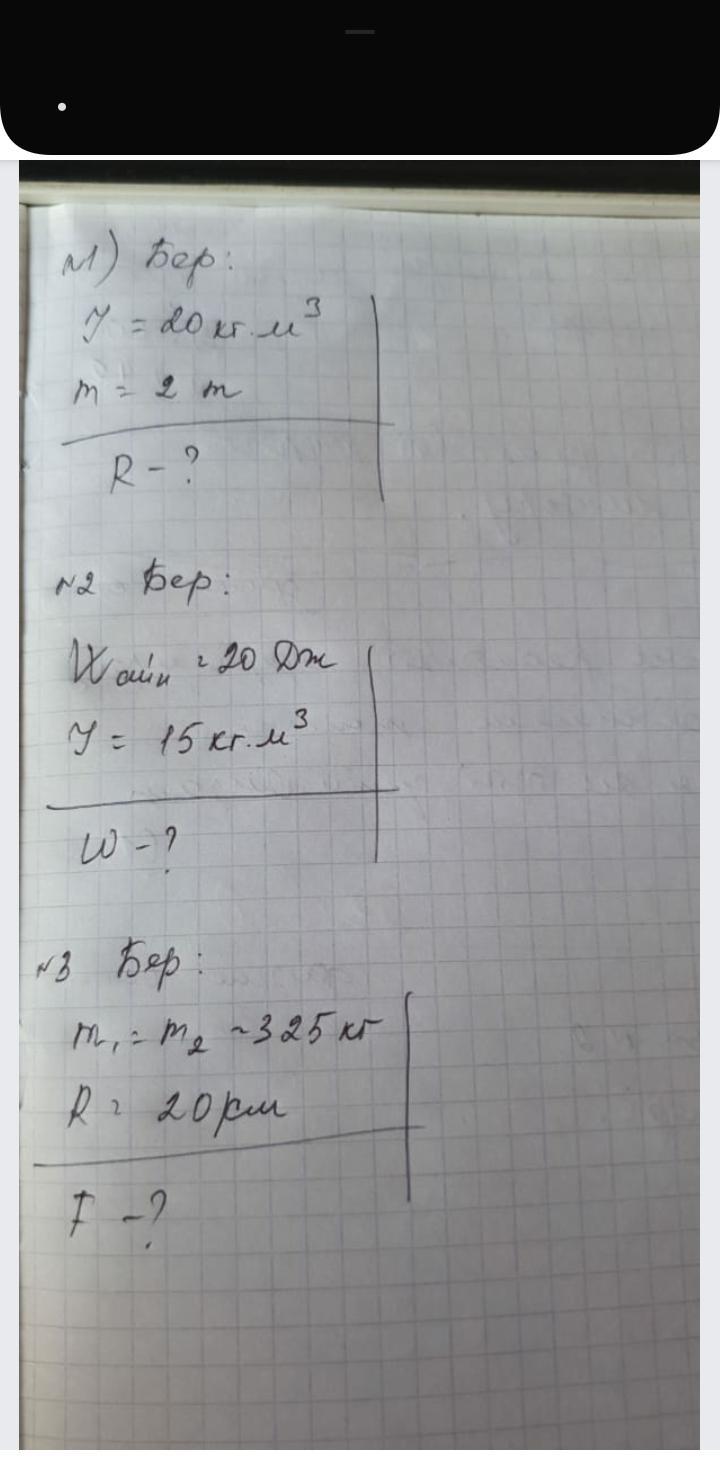 №1) Бер:
J = 20 кг.м³
m = 2 т
R - ?
№2 Бер:
Wайн = 20 Дж
J = 15 кг.м³
ω - ?
№3 Бер:
m₁ = m₂ ~ 325 кг
R = 20 км
F - ?